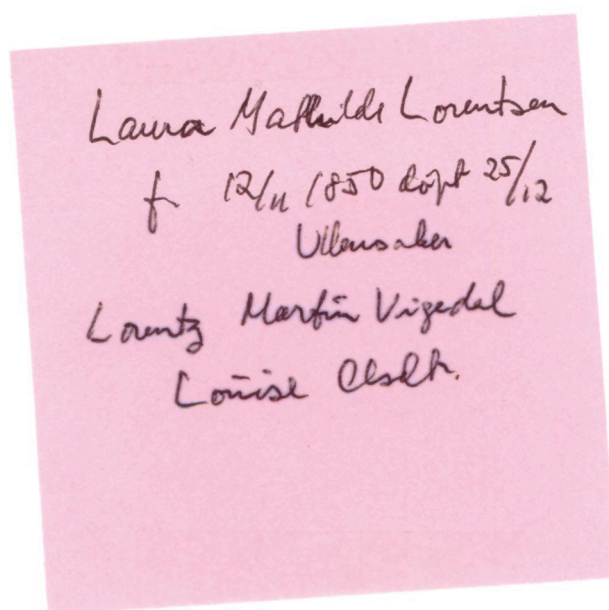 Laura Mathilde Lorentsen
f 12/11 1850 döpt 25/12
Ullensaker
Lorentz Martin Vigedal
Louise